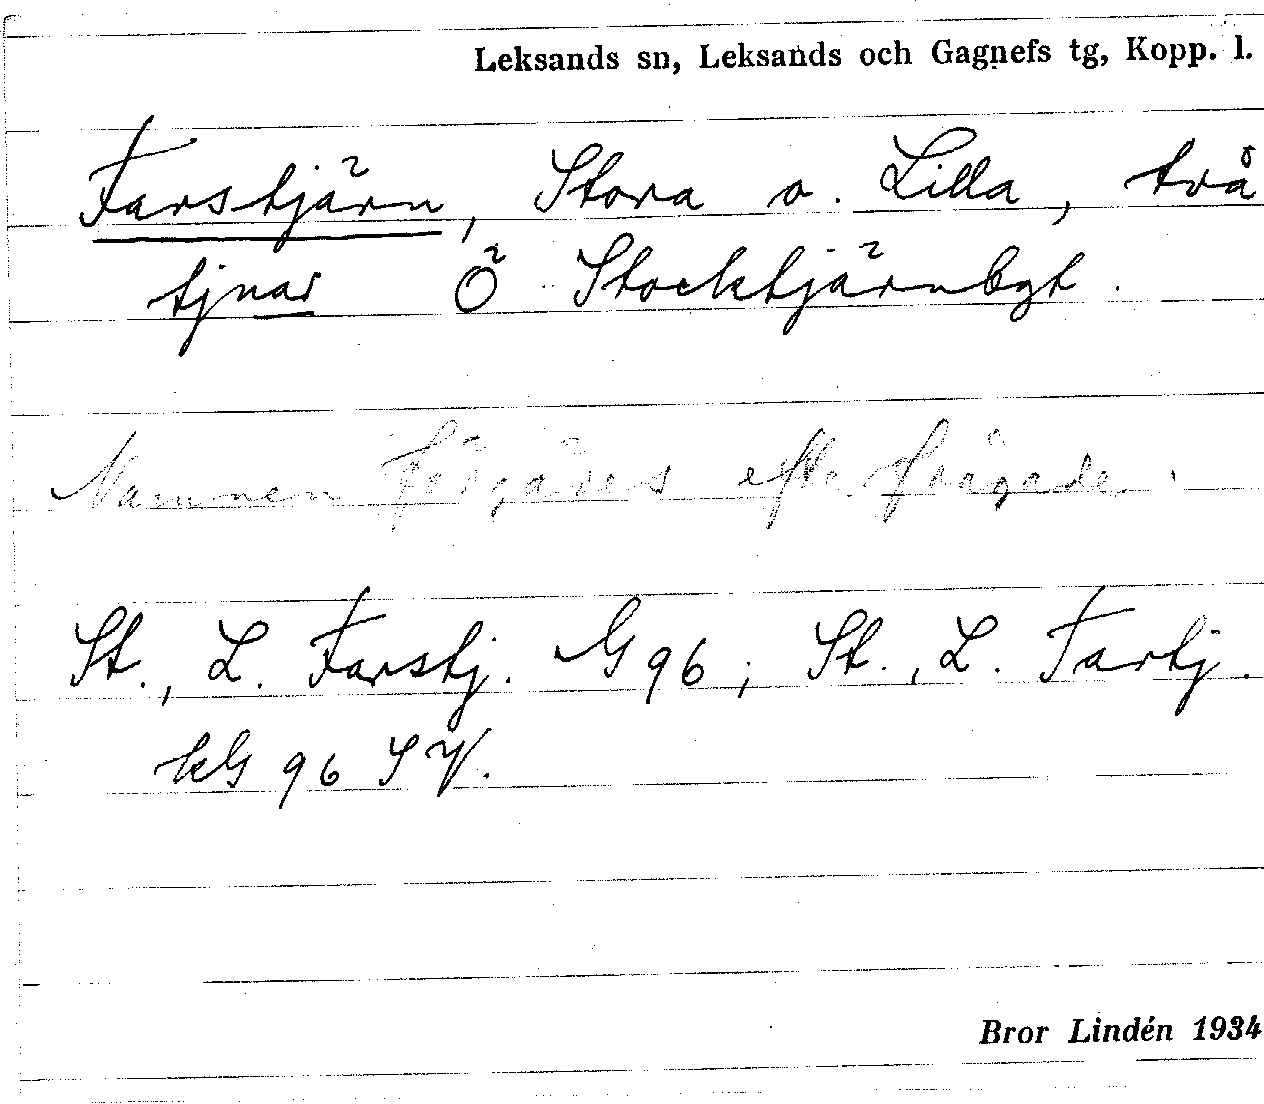 Leksands sn, Leksands och Gagnefs tg, Kopp. l.
Farstjärn, Stora o. Lilla, två
tjnar Ö Stocktjärnbgt.
Namnen förgäves efterfrågade.
St., L. Farstj. G 96; St., L. Fartj.
kG 96 SV.
Bror Lindén 1934